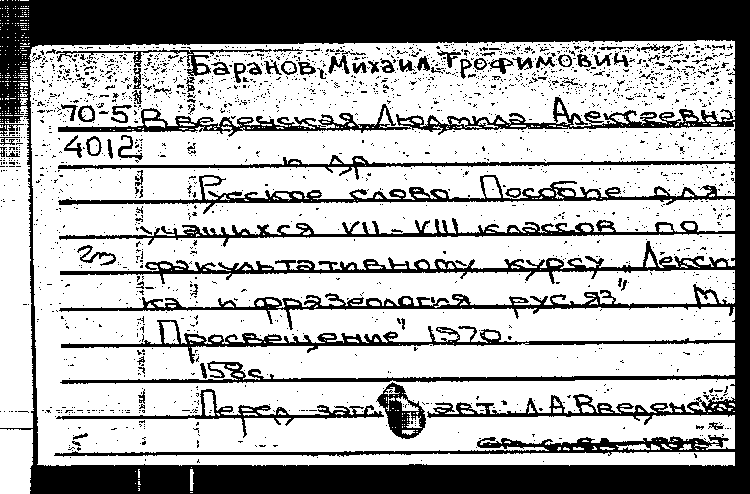 Баранов, Михаил Трофимович
70-5 Введенская Людмила Алексеевна
4012 и др.
Русское слово. Пособие для
учащихся VII-VIII классов по
2т факультативному курсу „Лекси-
ка и фразеология рус. яз" М.,
Просвещение" 1970.
158 с.
Перед загл. авт.: Л.А. Введенская